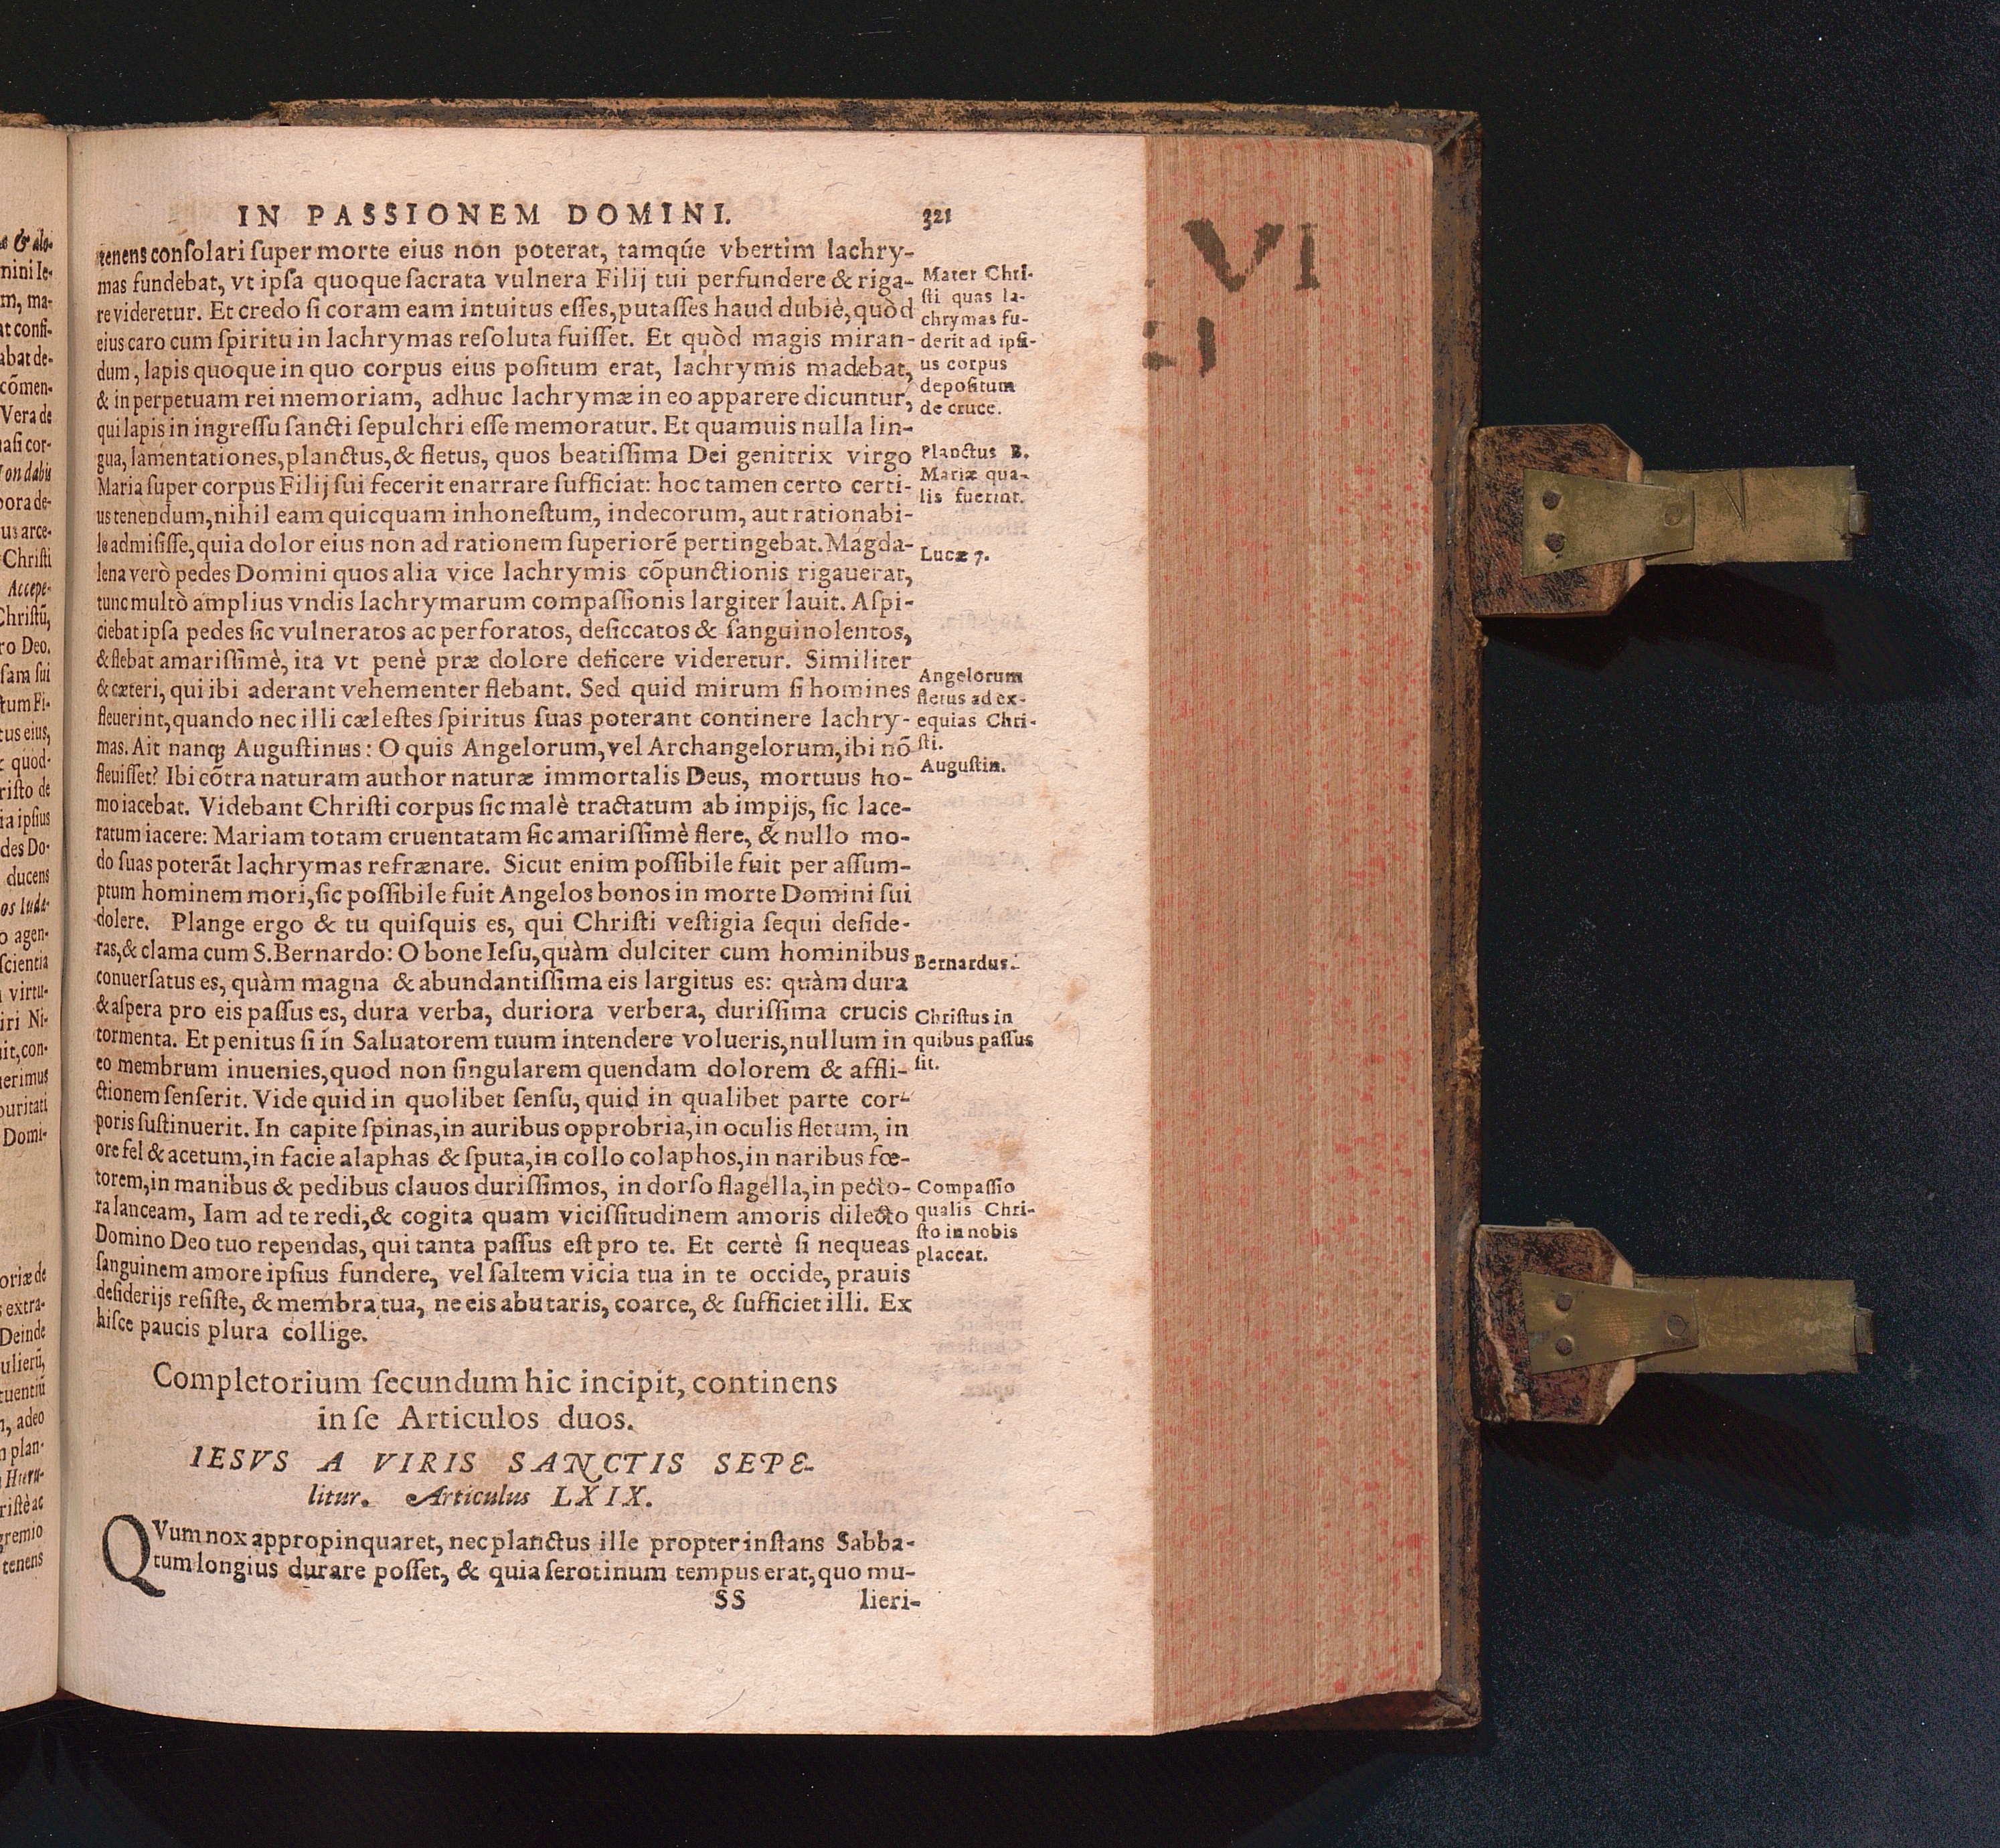 IN PASSIONEM DOMINI.
321
tenens conſolari ſuper morte eius non poterat, tamqúe vbertim lachry-
mas fundebat, vt ipſa quoque ſacrata vulnera Filij tui perfundere & riga-
re videretur. Et credo ſi coram eam intuitus eſſes, putaſſes haud dubiè, quòd
eius caro cum ſpiritu in lachrymas reſoluta fuiſſet. Et quòd magis miran-
dum, lapis quoque in quo corpus eius poſitum erat, lachrymis madebat,
& in perpetuam rei memoriam, adhuc lachrymæ in eo apparere dicuntur,
qui lapis in ingreſſu ſancti ſepulchri eſſe memoratur. Et quamuis nulla lin-
gua, lamentationes, planctus, & fletus, quos beatiſſima Dei genitrix virgo
Maria ſuper corpus Filij ſui fecerit enarrare ſufficiat: hoc tamen certo certi-
us tenendum, nihil eam quicquam inhoneſtum, indecorum, aut rationabi-
le admiſiſſe, quia dolor eius non ad rationem ſuperiorē pertingebat. Magda-
lena verò pedes Domini quos alia vice lachrymis cōpunctionis rigauerat,
tunc multò amplius vndis lachrymarum compaſſionis largiter lauit. Aſpi-
ciebat ipſa pedes ſic vulneratos ac perforatos, deſiccatos & ſanguinolentos,
& flebat amariſſimè, ita vt penè præ dolore deficere videretur. Similiter
& cæteri, qui ibi aderant vehementer flebant. Sed quid mirum ſi homines
fleuerint, quando nec illi cæleſtes ſpiritus ſuas poterant continere lachry-
mas. Ait nanq; Auguſtinus: O quis Angelorum, vel Archangelorum, ibi nō
fleuiſſet? Ibi cōtra naturam author naturæ immortalis Deus, mortuus ho-
mo iacebat. Videbant Chriſti corpus ſic malè tractatum ab impijs, ſic lace-
ratum iacere: Mariam totam cruentatam ſic amariſſimè flere, & nullo mo-
do ſuas poterāt lachrymas refrænare. Sicut enim poſſibile fuit per aſſum-
ptum hominem mori, ſic poſſibile fuit Angelos bonos in morte Domini ſui
dolere. Plange ergo & tu quiſquis es, qui Chriſti veſtigia ſequi deſide-
ras, & clama cum S. Bernardo: O bone Ieſu, quàm dulciter cum hominibus
conuerſatus es, quàm magna & abundantiſſima eis largitus es: quàm dura
& aſpera pro eis paſſus es, dura verba, duriora verbera, duriſſima crucis
tormenta. Et penitus ſi in Saluatorem tuum intendere volueris, nullum in
eo membrum inuenies, quod non ſingularem quendam dolorem & affli-
ctionem ſenſerit. Vide quid in quolibet ſenſu, quid in qualibet parte cor-
poris ſuſtinuerit. In capite ſpinas, in auribus opprobria, in oculis fletum, in
ore fel & acetum, in facie alaphas & ſputa, in collo colaphos, in naribus fœ-
torem, in manibus & pedibus clauos duriſſimos, in dorſo flagella, in pecto-
ra lanceam, Iam ad te redi, & cogita quam viciſſitudinem amoris dilecto
Domino Deo tuo rependas, qui tanta paſſus eſt pro te. Et certè ſi nequeas
ſanguinem amore ipſius fundere, vel ſaltem vicia tua in te occide, prauis
deſiderijs reſiſte, & membra tua, ne eis abutaris, coarce, & ſufficiet illi. Ex
hiſce paucis plura collige.
Completorium ſecundum hic incipit, continens
in ſe Articulos duos.
IESVS A VIRIS SANCTIS SEPE-
litur. Articulus LXIX.
QVum nox appropinquaret, nec planctus ille propter inſtans Sabba-
tum longius durare poſſet, & quia ſerotinum tempus erat, quo mu-
SS lieri-
Mater Chri-
ſti quas la-
chrymas fu-
derit ad ipſi-
us corpus
depoſitum
de cruce.
Planctus B.
Mariæ qua-
lis fuerint.
Lucæ 7.
Angelorum
fletus ad ex-
equias Chri-
ſti.
Auguſtin.
Bernardus.
Chriſtus in
quibus paſſus
ſit.
Compaſſio
qualis Chri-
ſto in nobis
placeat.
VI